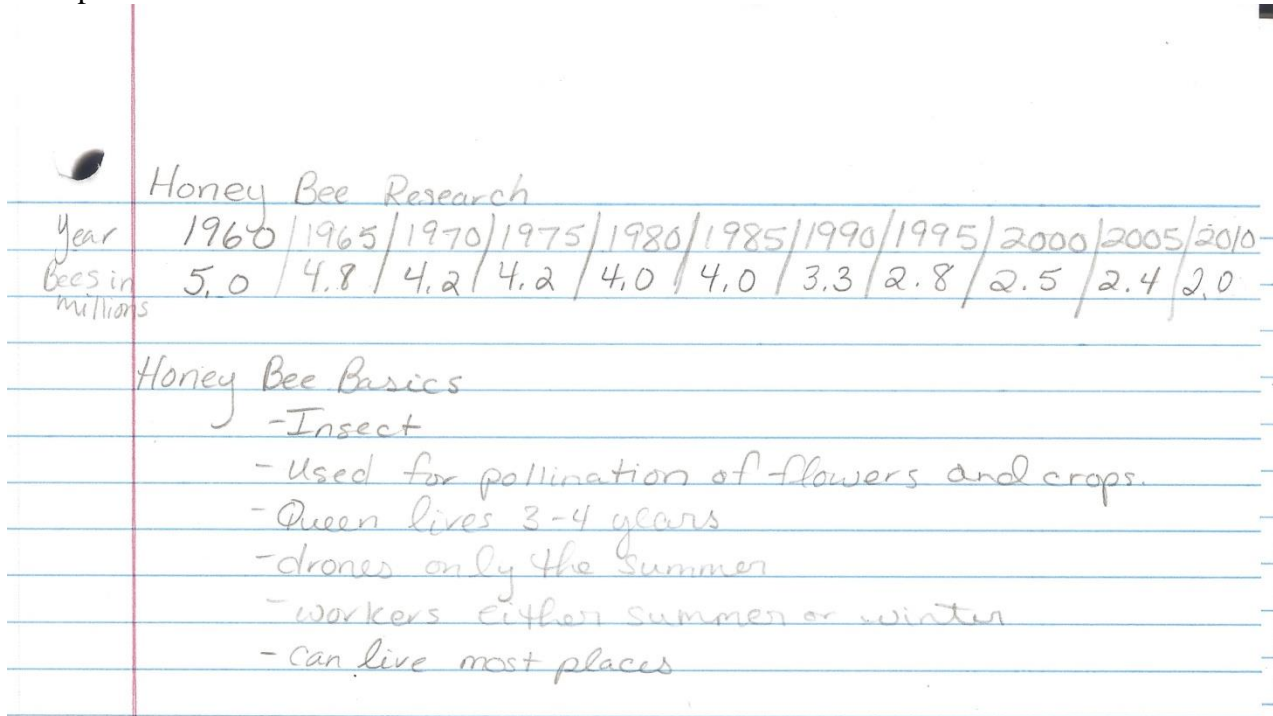 Honey Bee Research
Year 1960 / 1965 / 1970 / 1975 / 1980 / 1985 / 1990 / 1995 / 2000 / 2005 / 2010
Bees in millions 5.0 / 4.8 / 4.2 / 4.2 / 4.0 / 4.0 / 3.3 / 2.8 / 2.5 / 2.4 / 2.0
Honey Bee Basics
- Insect
- Used for pollination of flowers and crops.
- Queen lives 3-4 years
- drones only the summer
- workers either summer or winter
- can live most places